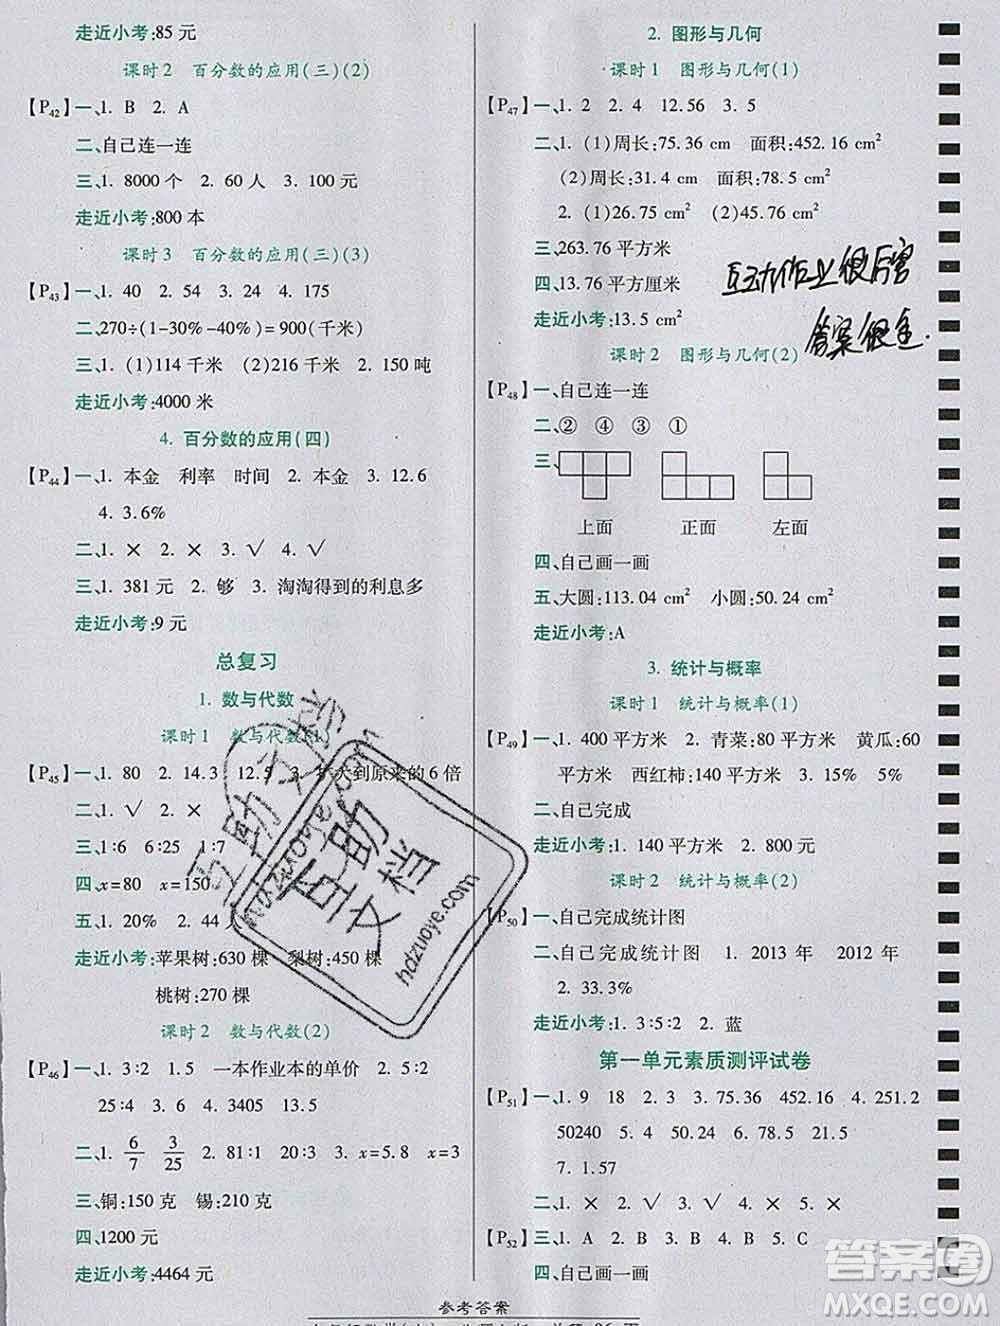 走近小考:85 元
课时2 百分数的应用(三)(2)
【P42】一、1. B 2. A
二、自己连一连
三、1. 8000 个 2. 60 人 3. 100 元
走近小考:800 本
课时3 百分数的应用(三)(3)
【P43】一、1. 40 2. 54 3. 24 4. 175
二、270÷(1-30%-40%)=900(千米)
三、1. (1)114 千米 (2)216 千米 2. 150 吨
走近小考:4000 米
4. 百分数的应用(四)
【P44】一、1. 本金 利率 时间 2. 本金 3. 12.6
4. 3.6%
二、1. × 2. × 3. √ 4. √
三、1. 381 元 2. 够 3. 淘淘得到的利息多
走近小考:9 元
总复习
1. 数与代数
课时1 数与代数(1)
【P45】一、1. 80 2. 14.3 12.5 3. 扩大到原来的 6 倍
二、1. √ 2. × 3. ×
三、1∶6 6∶25 1∶7
四、x=80 x=150
五、1. 20% 2. 44
走近小考:苹果树:630 棵 梨树:450 棵
桃树:270 棵
课时2 数与代数(2)
【P46】一、1. 3∶2 1.5 一本作业本的单价 2. 5∶2
25∶4 3. 150 4. 3405 13.5
二、1. 6/7 3/25 2. 81∶1 20∶3 3. x=5.8 x=3
三、铜:150 克 锡:210 克
四、1200 元
走近小考:4464 元
2. 图形与几何
课时1 图形与几何(1)
【P47】一、1. 2 2. 4 12.56 3. 5
二、1. (1)周长:75.36 cm 面积:452.16 cm²
(2)周长:31.4 cm 面积:78.5 cm²
2. (1)26.75 cm² (2)45.76 cm²
三、263.76 平方米
四、13.76 平方厘米
走近小考:13.5 cm²
互动作业很厉害
答案很全.
课时2 图形与几何(2)
【P48】一、自己连一连
二、② ④ ③ ①
三、
上面 正面 左面
四、自己画一画
五、大圆:113.04 cm² 小圆:50.24 cm²
走近小考:A
3. 统计与概率
课时1 统计与概率(1)
【P49】一、1. 400 平方米 2. 青菜:80 平方米 黄瓜:60
平方米 西红柿:140 平方米 3. 15% 5%
二、自己完成
走近小考:1. 140 平方米 2. 800 元
课时2 统计与概率(2)
【P50】一、自己完成统计图
二、自己完成统计图 1. 2013 年 2012 年
2. 33.3%
走近小考:1. 3∶5∶2 2. 蓝
第一单元素质测评试卷
【P51】一、1. 9 18 2. 3 3. 75.36 452.16 4. 251.2
50240 5. 4 50.24 6. 78.5 21.5
7. 1.57
二、1. × 2. √ 3. √ 4. × 5. √
【P52】三、1. A 2. B 3. A 4. B 5. C
四、自己画一画
参考答案
互助文档
hdzuoye.com
互助文档
hdzuoye.com
答案圈
MXQE.COM